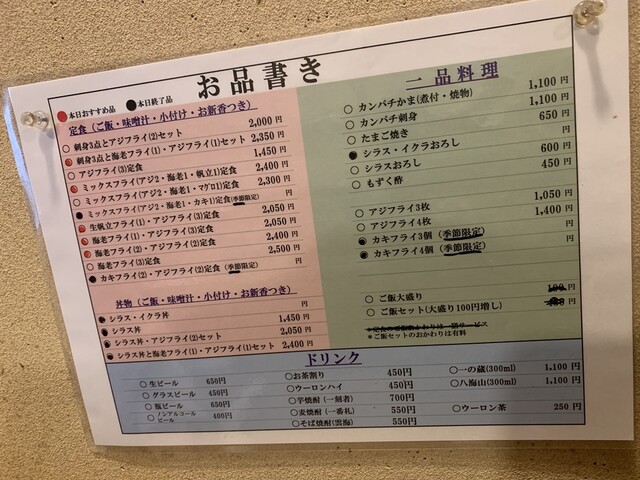 お品書き
本日おすすめ品 本日終了品
定食（ご飯・味噌汁・小付け・お新香つき）
○ 刺身3点とアジフライ(2)セット 2,000 円
刺身3点と海老フライ(1)・アジフライ(1)セット 2,350 円
○ アジフライ(3)定食 1,450 円
ミックスフライ(アジ2・海老1・帆立1)定食 2,400 円
○ ミックスフライ(アジ2・海老1・マグロ1)定食 2,300 円
ミックスフライ(アジ2・海老1・カキ1)定食(季節限定) 円
生帆立フライ(1)・アジフライ(3)定食 2,050 円
海老フライ(1)・アジフライ(3)定食 2,050 円
海老フライ(2)・アジフライ(2)定食 2,400 円
○ 海老フライ(3)定食 2,500 円
カキフライ(2)・アジフライ(2)定食 (季節限定) 円
丼物（ご飯・味噌汁・小付け・お新香つき）
シラス・イクラ丼 円
シラス丼 1,450 円
シラス丼・アジフライ(2)セット 2,050 円
シラス丼と海老フライ(1)・アジフライ(1)セット 2,400 円
一品料理
○ カンパチかま(煮付・焼物) 1,100 円
○ カンパチ刺身 1,100 円
○ たまご焼き 650 円
シラス・イクラおろし 円
○ シラスおろし 600 円
○ もずく酢 450 円
○ アジフライ3枚 1,050 円
○ アジフライ4枚 1,400 円
カキフライ3個 (季節限定) 円
カキフライ4個 (季節限定) 円
○ ご飯大盛り 円
○ ご飯セット(大盛り100円増し) 円
*ご飯セットのおかわりは有料
ドリンク
○生ビール 650円
○グラスビール 450円
○瓶ビール 650円
○ノンアルコールビール 400円
○お茶割り 450円
○ウーロンハイ 450円
○芋焼酎 (一刻者) 700円
○麦焼酎 (一番札) 550円
○そば焼酎(雲海) 550円
○一の蔵(300ml) 1,100 円
○八海山(300ml) 1,100 円
○ウーロン茶 250 円